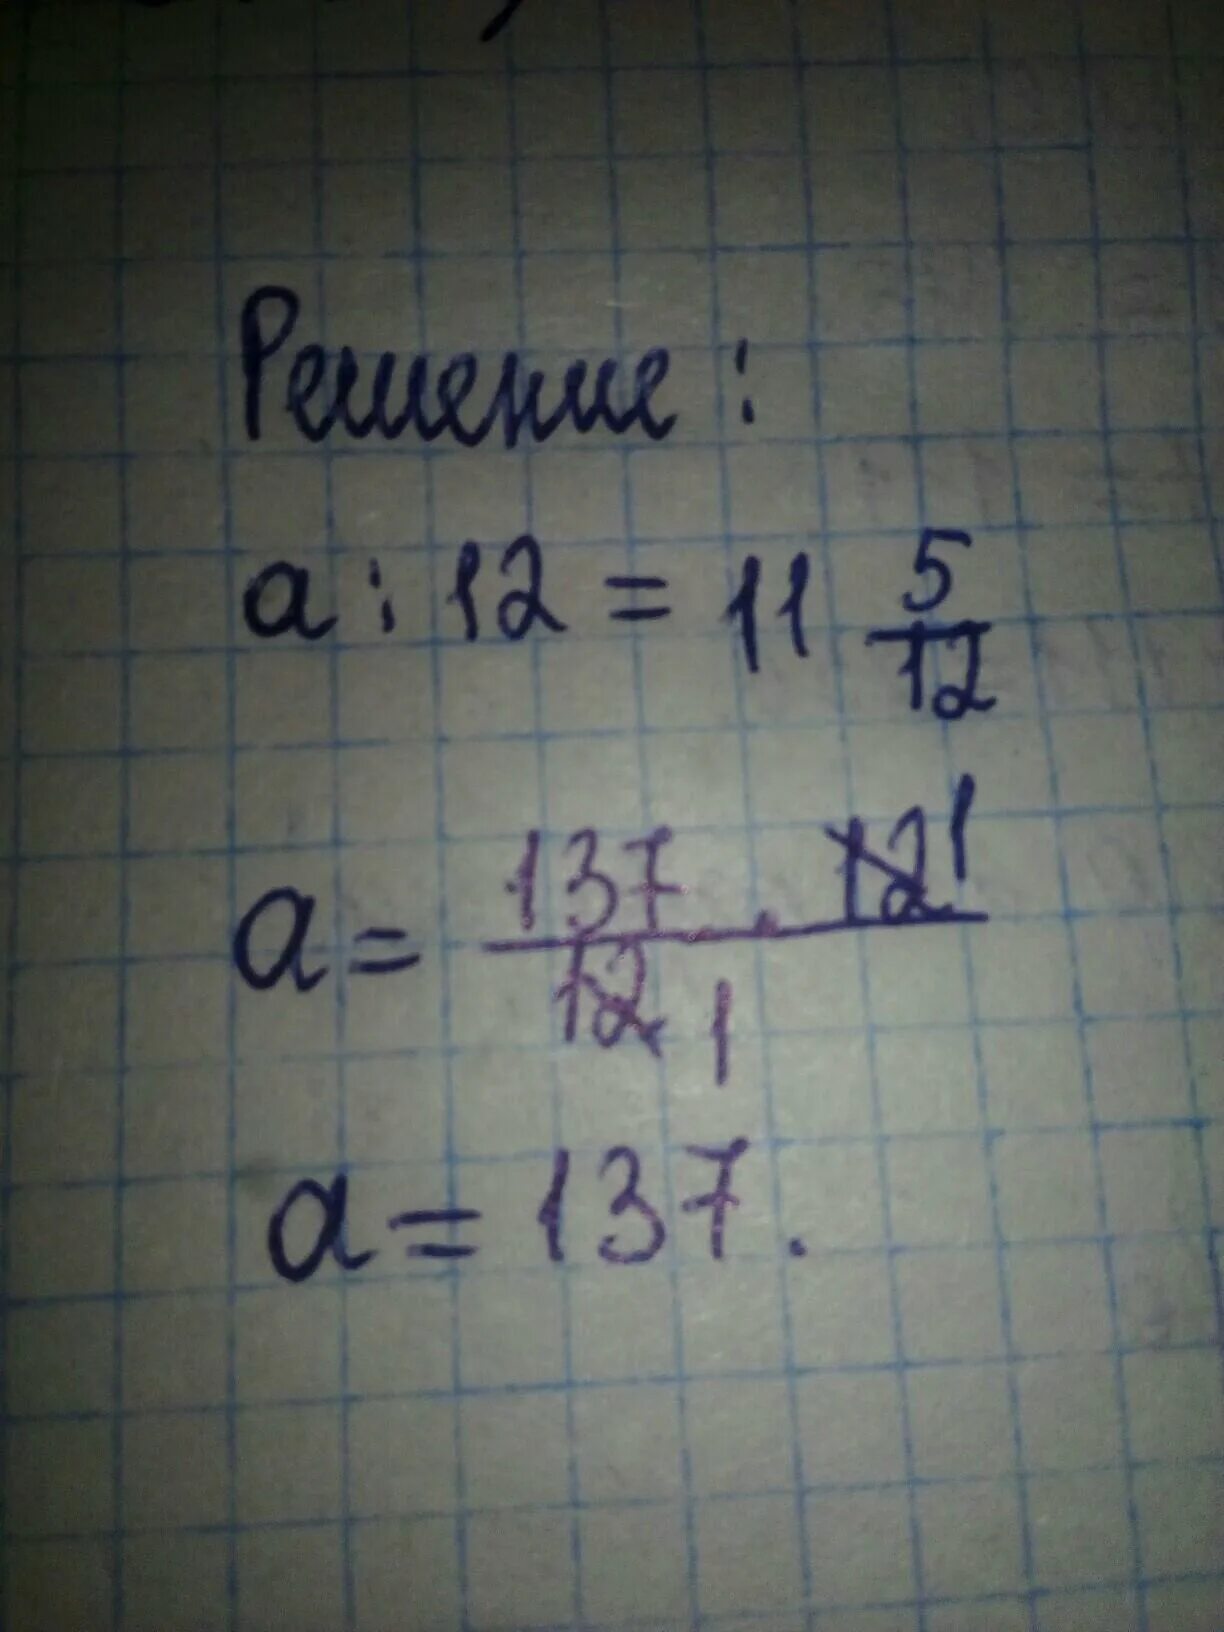 Решение:
a : 12 = 11 5/12
a = 137 · 12 1 / 12 1
a = 137.